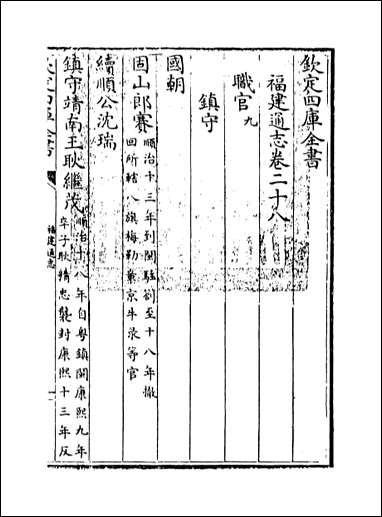 欽定四庫全書
福建通志卷二十八
職官九
鎮守
國朝
固山郎賽順治十三年到閩駐劄至十八年撤
回所轄八旗梅勒章京牛录等官
續順公沈瑞
鎮守靖南王耿繼茂順治十八年自粤鎮閩康熙九年
卒子耿精忠襲封康熙十三年反
福建通志